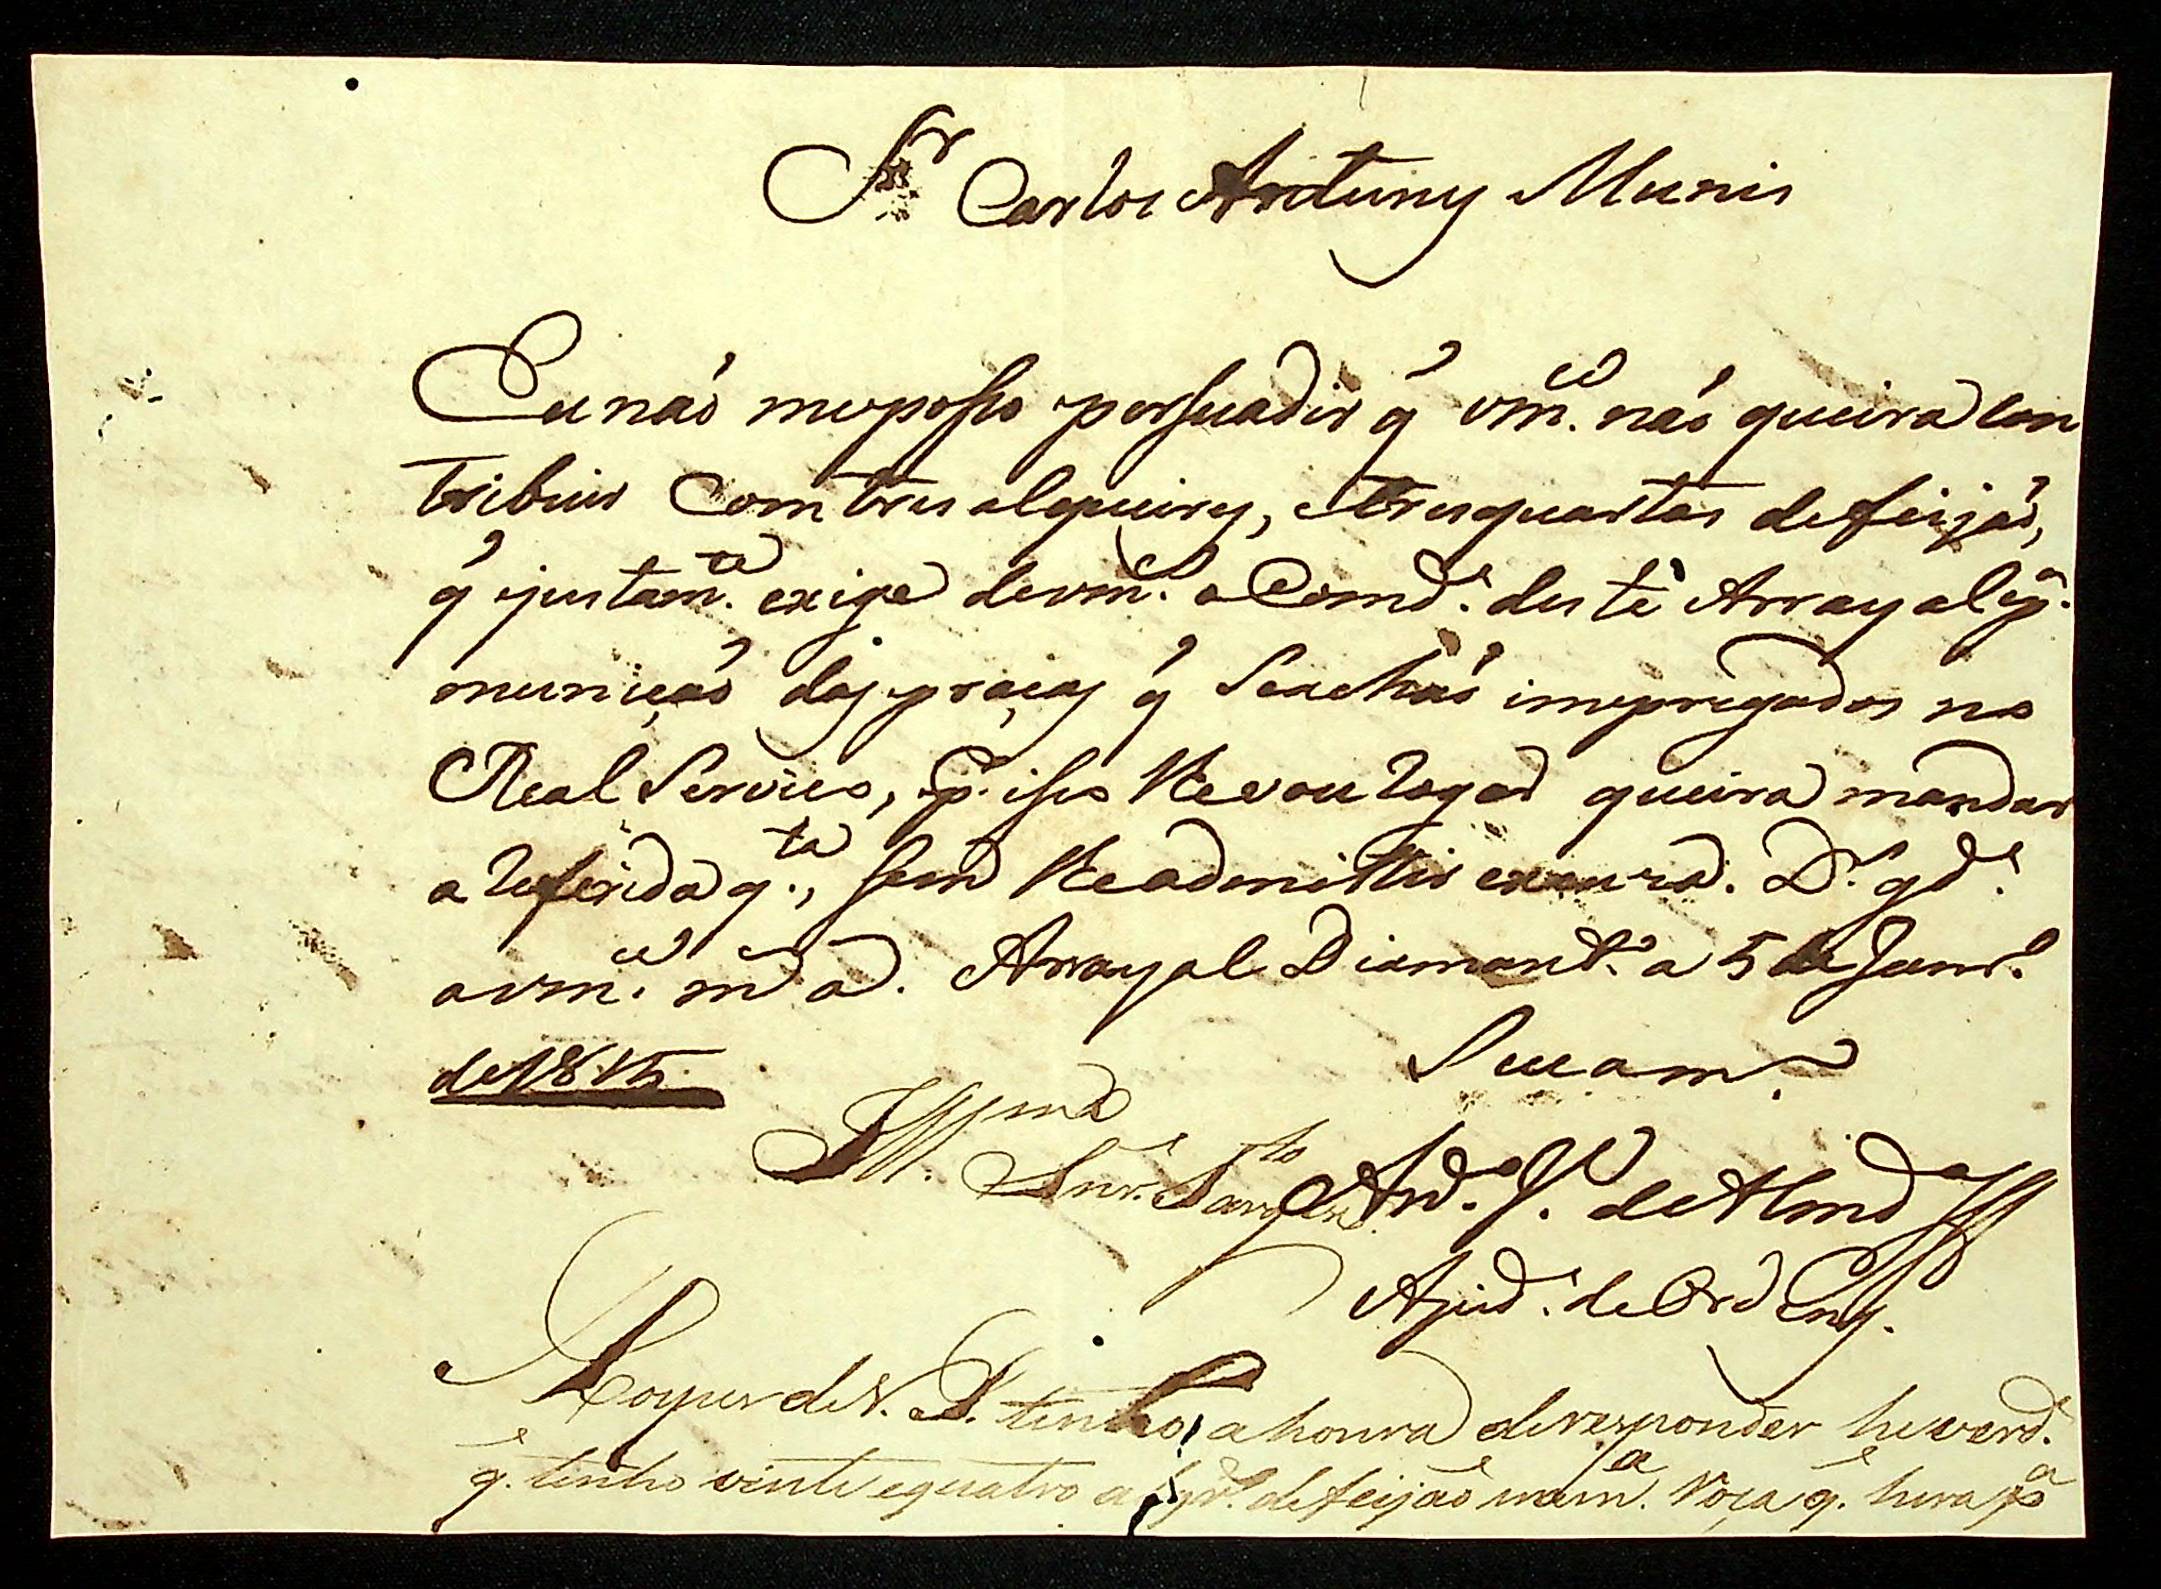 Sr Carlos Antuny Munis
Eu naó meposso persuadir q̃ vmce. naó queira con
tribuir Com tres alqueires, e tres quartas de feijaó,
q̃ justamte. exige devmce. o Comde. deste Arrayal pa.
municaó das praças q̃ Seachaó impregados no
Real Serviço, pr. isso lhe vou rogar queira mandar
a referida qta., sem lhe admittir D.s gde.
a vmce. ms. as. Arrayal Diamante. a 5 de Janro.
de 1815.
Seu amo.
Illmo. Snr. Sargto
Anto. J. de Almda
Ajude. de Ordens.
Aoque de V. S. tenho a honra de responder he verde.
q.e tenho vinte e quatro alqrs. de feijaó na ma. roça q.e hera pa